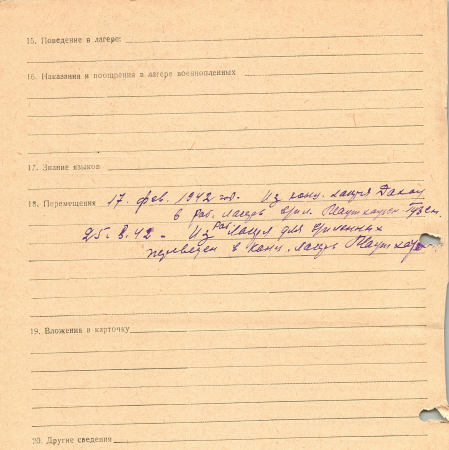 15. Поведение в лагере:
16. Наказания и поощрения в лагере военнопленных
17. Знание языков
18. Перемещения 17. фев. 1942 го. Из конц. лагеря Дахау
в раб. лагерь Маутхаузен-Гузен.
25.8.42. Из раб лагеря для
переведен в конц. лагерь Маутхауз
19. Вложения в карточку
20. Другие сведения